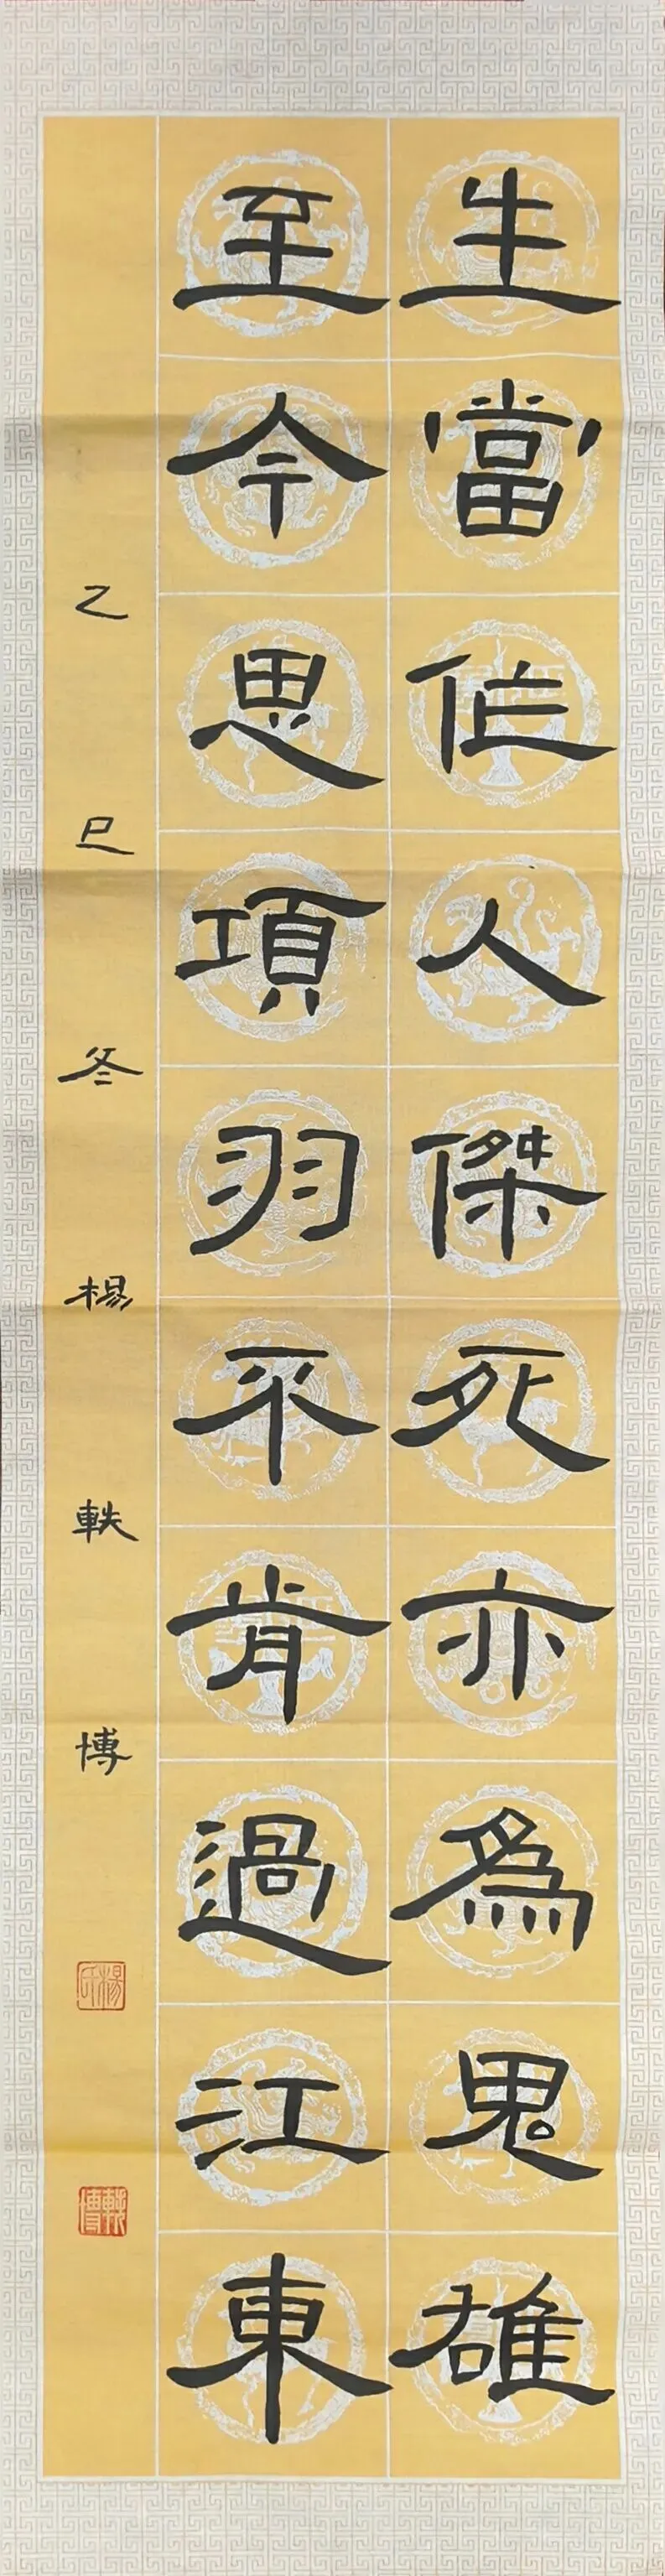 生當作人傑死亦為鬼雄
至今思項羽不肯過江東
乙巳冬楊軼博
楊氏
軼博